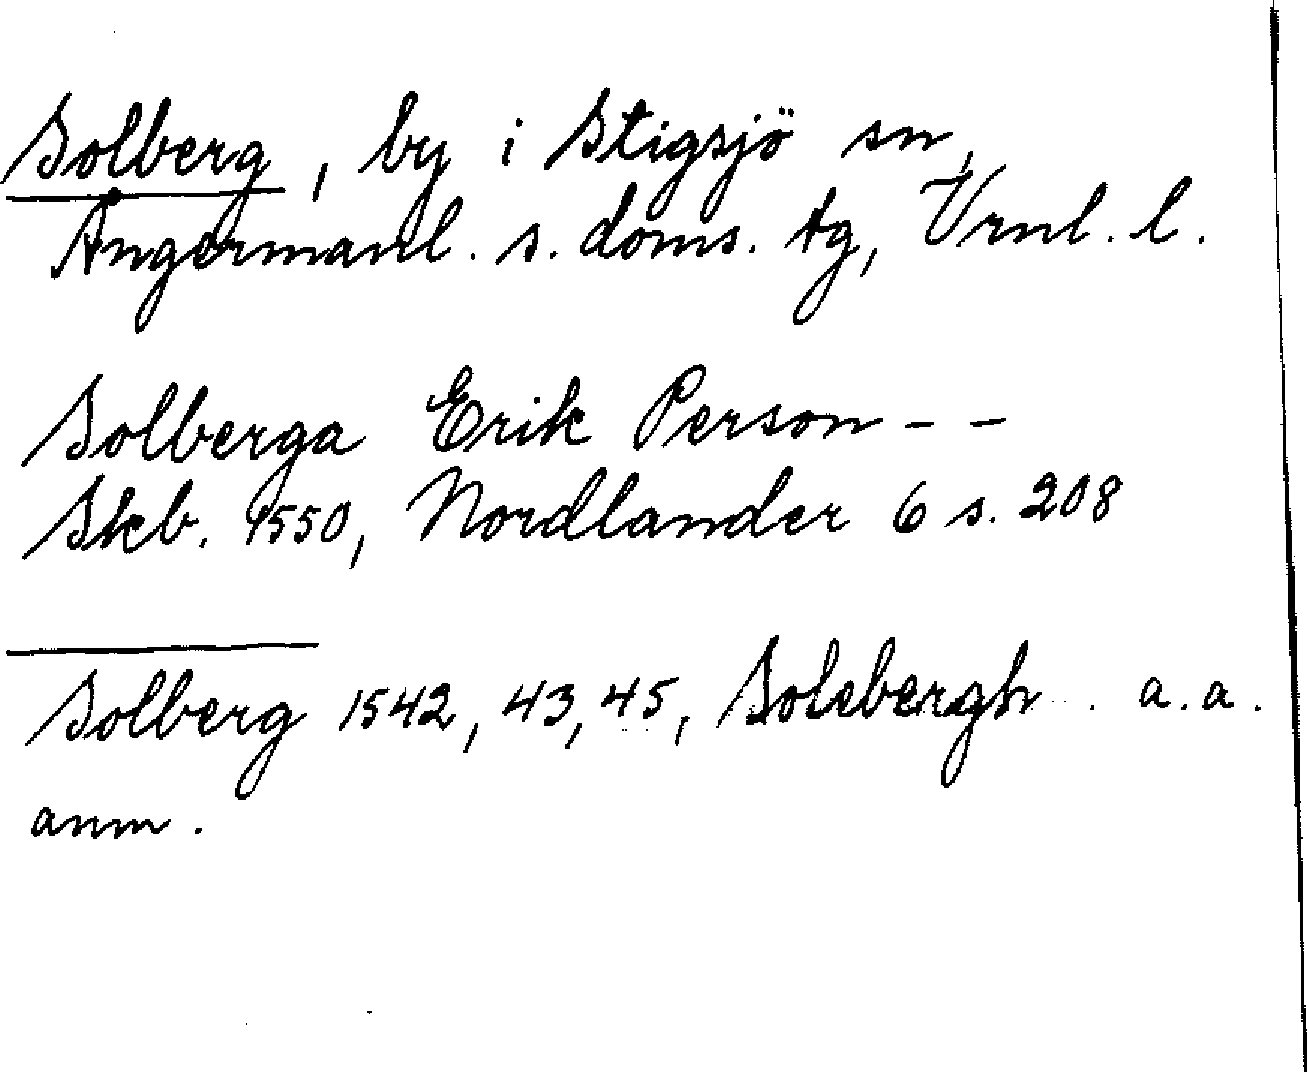 Solberg, by i Stigsjö sn,
Ångermanl. s. doms. tg, Vrnl. l.
Solberga Erik Person - -
Skb. 1550, Nordlander 6 s. 208
Solberg 1542, 43, 45, Solebergh . a. a.
anm.